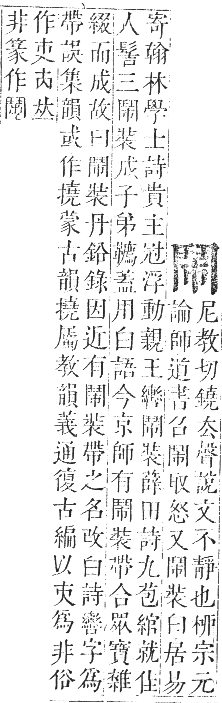 鬧
尼教切鐃去聲說文不靜也柳宗元
論師道書召鬧取怒又鬧裝白居易
寄翰林學士詩貴主冠浮動親王轡鬧裝薛田詩九苞綰就佳
人髻三鬧裝成子弟韉蓋用白語今京師有鬧裝帶合眾寶雜
綴而成故曰鬧裝丹鉛錄因近有鬧裝帶之名改白詩轡字為
帶誤集韻或作撓蒙古韻撓屬教韻義通復古編以為非俗
作
非篆作鬧